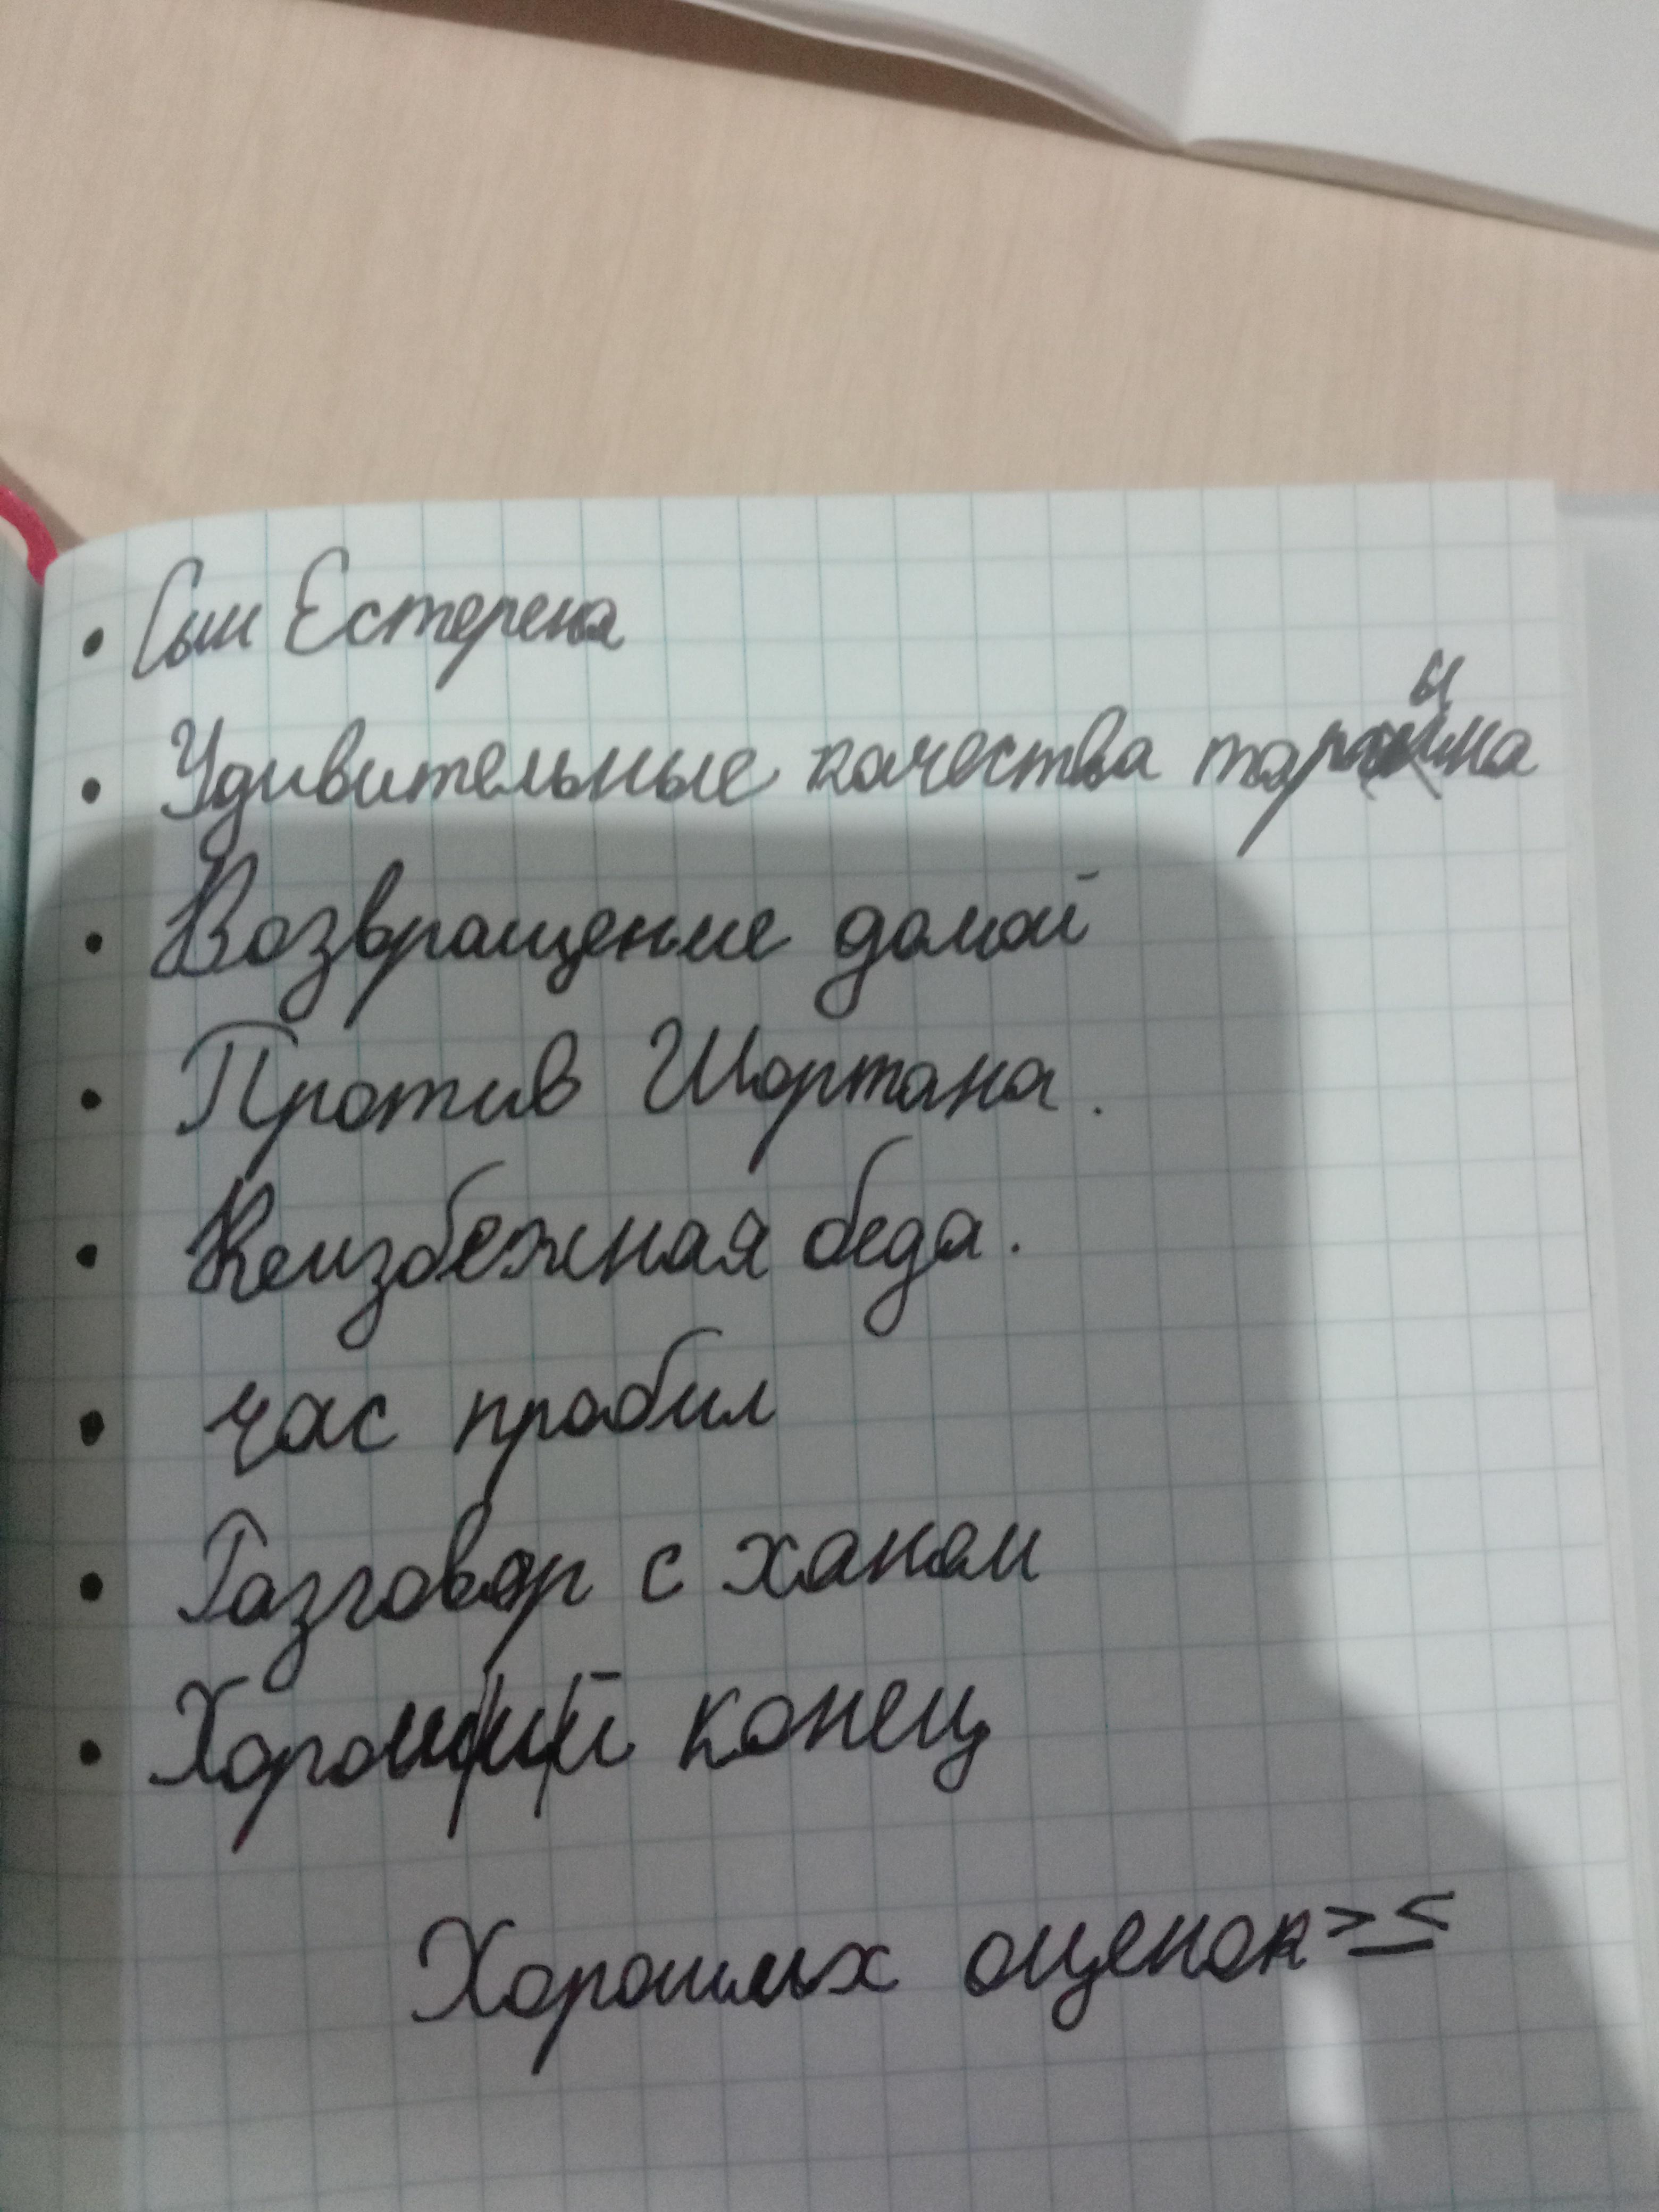 • Сын Естерека
• Удивительные качества тарпына
• Возвращение домой
• Против Шортана.
• Неизбежная беда.
• час пробил
• Разговор с ханом
• Хороший конец
Хороших оценок >_<